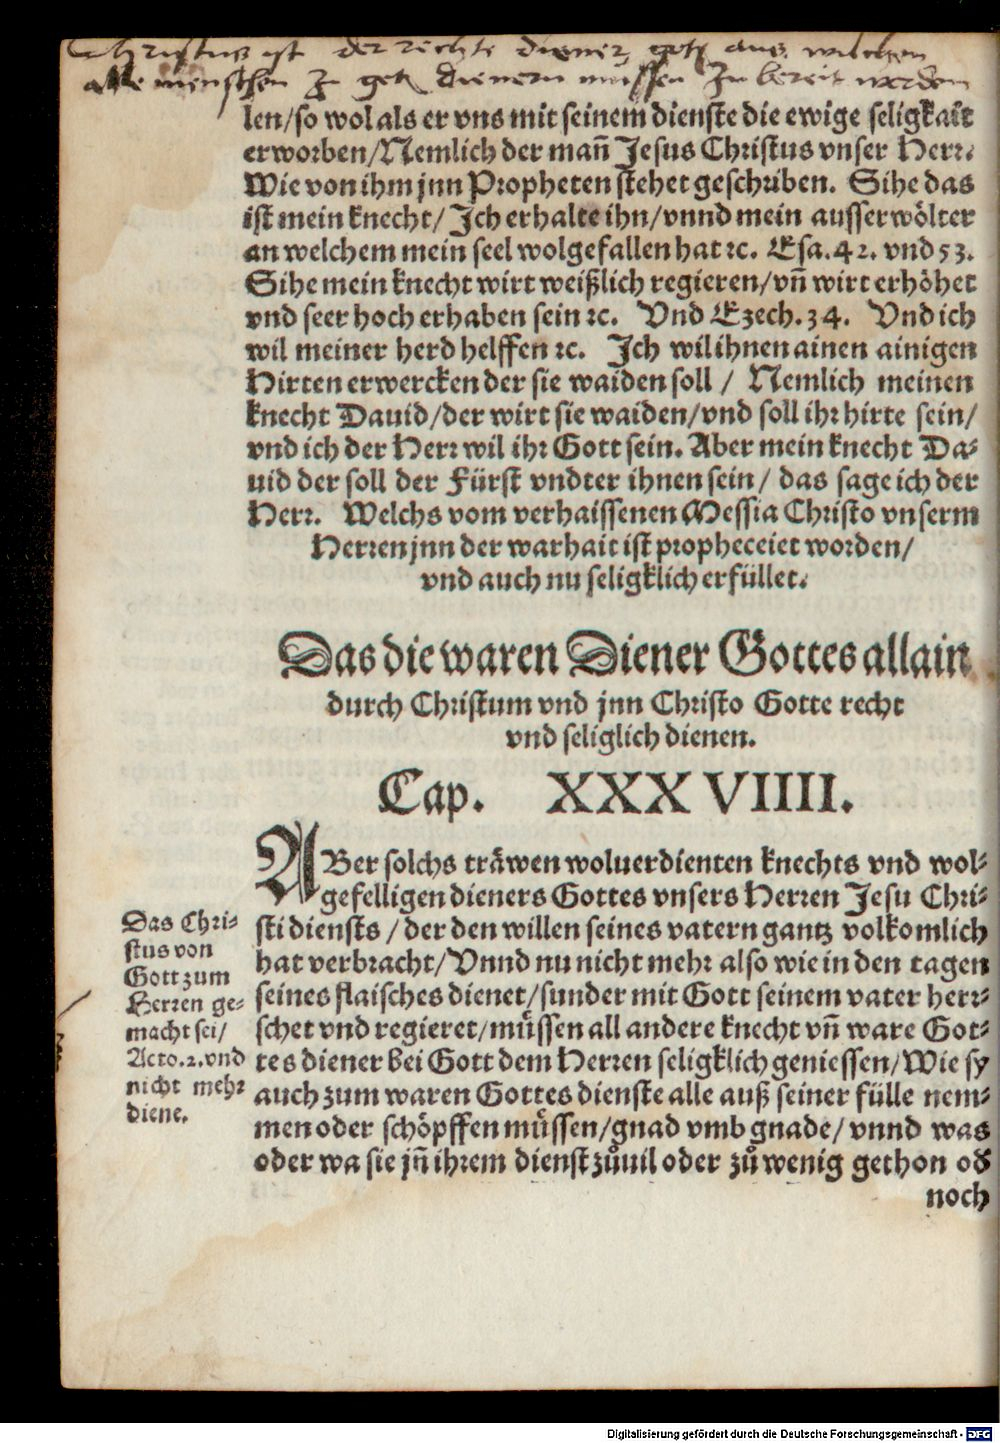 Christus ist der rechte diener gots aus welchem
alle menschen zu gots dienern mussen zu bereit werden
len/so wol als er vns mit seinem dienste die ewige seligkait
erworben/Nemlich der mañ Jesus Christus vnser Herr.
Wie von ihm jnn Propheten stehet geschriben. Sihe das
ist mein knecht/ Ich erhalte ihn/vnnd mein ausserwölter
an welchem mein seel wolgefallen hat ꝛc. Esa.42. vnd 53.
Sihe mein knecht wirt weißlich regieren/vñ wirt erhöhet
vnd seer hoch erhaben sein ꝛc. Vnd Ezech.34. Vnd ich
wil meiner herd helffen ꝛc. Ich wil ihnen ainen ainigen
Hirten erwercken der sie waiden soll / Nemlich meinen
knecht Dauid/der wirt sie waiden/vnd soll ihr hirte sein/
vnd ich der Herr wil ihr Gott sein. Aber mein knecht Da-
uid der soll der Fürst vndter ihnen sein/ das sage ich der
Herr. Welchs vom verhaissenen Messia Christo vnserm
Herren jnn der warhait ist propheceiet worden/
vnd auch nu seligklich erfüllet.
Das die waren Diener Gottes allain
durch Christum vnd jnn Christo Gotte recht
vnd seliglich dienen.
Cap. XXXVIIII.
ABer solchs träwen woluerdienten knechts vnd wol-
gefelligen dieners Gottes vnsers Herren Jesu Chri-
sti diensts / der den willen seines vatern gantz volkomlich
hat verbracht/Vnnd nu nicht mehr also wie in den tagen
seines flaisches dienet/sunder mit Gott seinem vater herr-
schet vnd regieret/müssen all andere knecht vñ ware Got-
tes diener bei Gott dem Herren seligklich geniessen/Wie sy
auch zum waren Gottes dienste alle auß seiner fülle nem-
men oder schöpffen müssen/gnad vmb gnade/ vnnd was
oder wa sie jñ ihrem dienst zůuil oder zů wenig gethon od
noch
Das Chri-
stus von
Gott zum
Herren ge-
macht sei/
Acto.2.vnd
nicht mehr
diene.
Digitalisierung gefördert durch die Deutsche Forschungsgemeinschaft - DFG